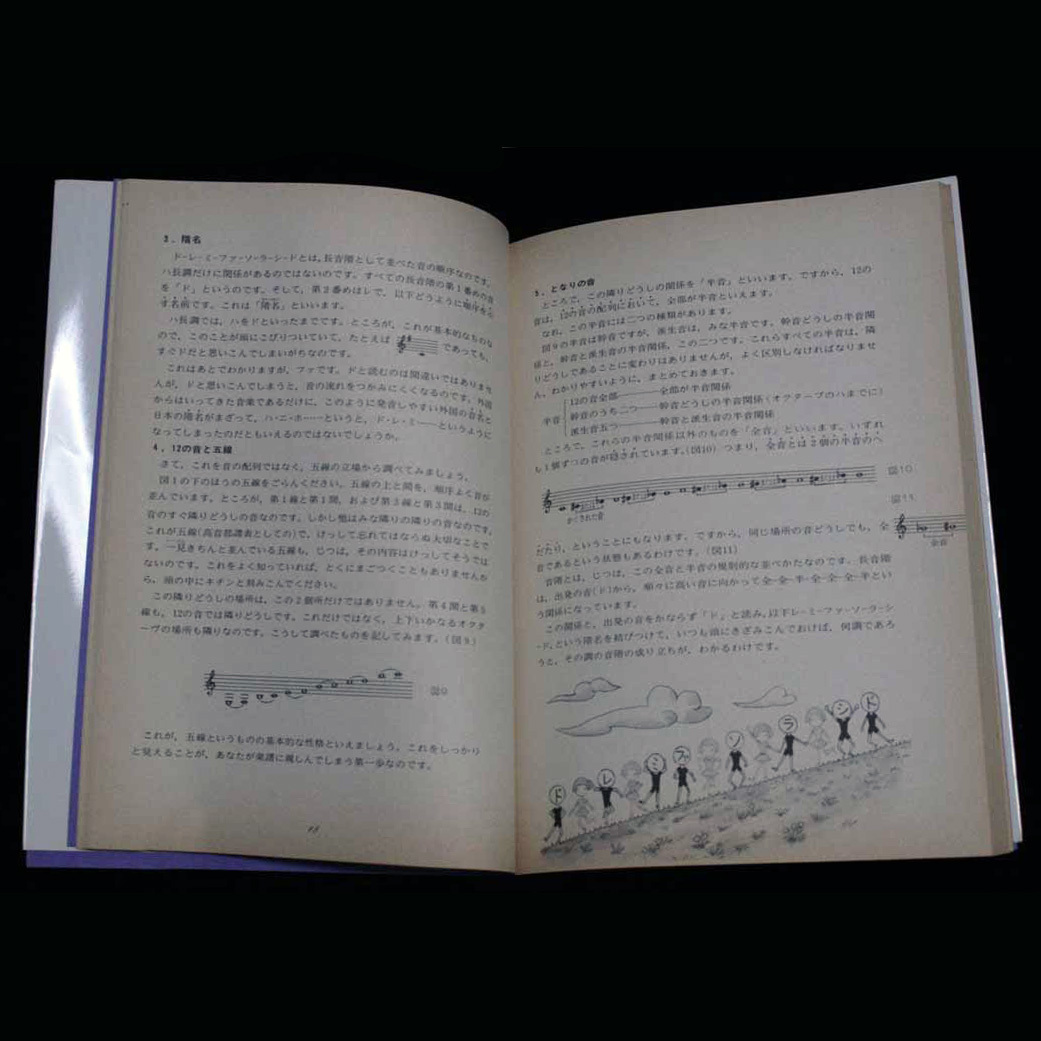 3．階名
ド-レ-ミ-ファ-ソ-ラ-シ-ドとは，長音階として並べた音の順序なのです。
ハ長調だけに関係があるのではないのです。すべての長音階の第1番めの音
を「ド」というのです。そして，第2番めはレで，以下どうように順序を示
す名前です。これは「階名」といいます。
ハ長調では，ハをドといったまでです。ところが，これが基本的なものな
ので，このことが頭にこびりついていて，たとえば であっても，
すぐドだと思いこんでしまいがちなのです。
これはあとでわかりますが，ファです。ドと読むのは間違いではありませ
んが，ドと思いこんでしまうと，音の流れをつかみにくくなるのです。外国
からはいってきた音楽であるだけに，このように発音しやすい外国の音名と
日本の階名がまざって，ハ・ニ・ホ……というと，ド・レ・ミ……というように
なってしまったのだともいえるのではないでしょうか。
4．12の音と五線
さて，これを音の配列ではなく，五線の立場から調べてみましょう。
図1の下のほうの五線をごらんください。五線の上と間を，順序よく音が
並んでいます。ところが，第1線と第1間，および第3線と第3間は，12の
音のすぐ隣りどうしの音なのです。しかし他はみな隣りの隣りの音なのです。
これが五線(高音部譜表としての)で，けっして忘れてはならぬ大切なことで
す。一見きちんと並んでいる五線も，じつは，その内容はけっしてそうでは
ないのです。これをよく知っていれば，とくにまごつくこともありませんか
ら，頭の中にキチンと刻みこんでください。
この隣りどうしの場所は，この2個所だけではありません。第4間と第5
線も，12の音では隣りどうしです。これだけではなく，上下いかなるオクタ
ーヴの場所も隣りなのです。こうして調べたものを記してみます。(図9)
図9
これが，五線というものの基本的な性格といえましょう。これをしっかり
と覚えることが，あなたが楽譜に親しんでしまう第一歩なのです。
5．となりの音
ところで，この隣りどうしの関係を「半音」といいます。ですから，12の
音は，12の音の配列において，全部が半音といえます。
なお，この半音には二つの種類があります。
図9の半音は幹音ですが，派生音は，みな半音です。幹音どうしの半音関
係と，幹音と派生音の半音関係，この二つです。これらすべての半音は，隣
りどうしであることに変わりはありませんが，よく区別しなければなりませ
ん。わかりやすいように，まとめておきます。
12の音全部———全部が半音関係
半音 幹音のうち二つ——幹音どうしの半音関係(オクターブのハまでに)
派生音五つ———幹音と派生音の半音関係
ところで，これらの半音関係以外のものを「全音」といいます。いずれ
も1個ずつの音が隠されています。(図10) つまり，全音とは2個の半音のへ
図10
かくされた音
図11
全音
だたり，ということにもなります。ですから，同じ場所の音どうしでも，全
音であるという状態もあるわけです。(図11)
音階とは，じつは，この全音と半音の規則的な並べかたなのです。長音階
は，出発の音(ド)から，順々に高い音に向かって全-全-半-全-全-全-半とい
う関係になっています。
この関係と，出発の音をかならず「ド」と読み，以下レ-ミ-ファ-ソ-ラ-シ
-ド，という階名を結びつけて，いつも頭にきざみこんでおけば，何調であろ
うと，その調の音階の成り立ちが，わかるわけです。
ド
レ
ミ
ファ
ソ
ラ
シ
ド